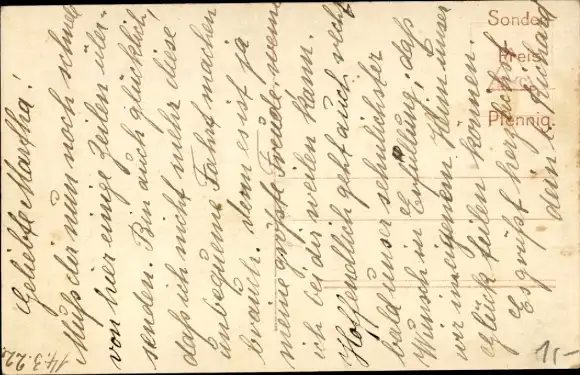 14.3.22.
Geliebte Martha!
Muss dir nun noch schnell
von hier einige Zeilen über-
senden. Bin auch glücklich,
dass ich nicht mehr diese
unbequeme Fahrt machen
brauch. denn es ist ja
meine grösste Freude wenn
ich bei dir weilen kann.
Hoffendlich geht auch recht
bald unser sehnlichster
Wunsch in Erfüllung, dass
wir im eigenem Heim unser
Glück teilen können.
Es grüsst herzlichst
dein b. Richard
Sonder
Preis
Pfennig
1,-